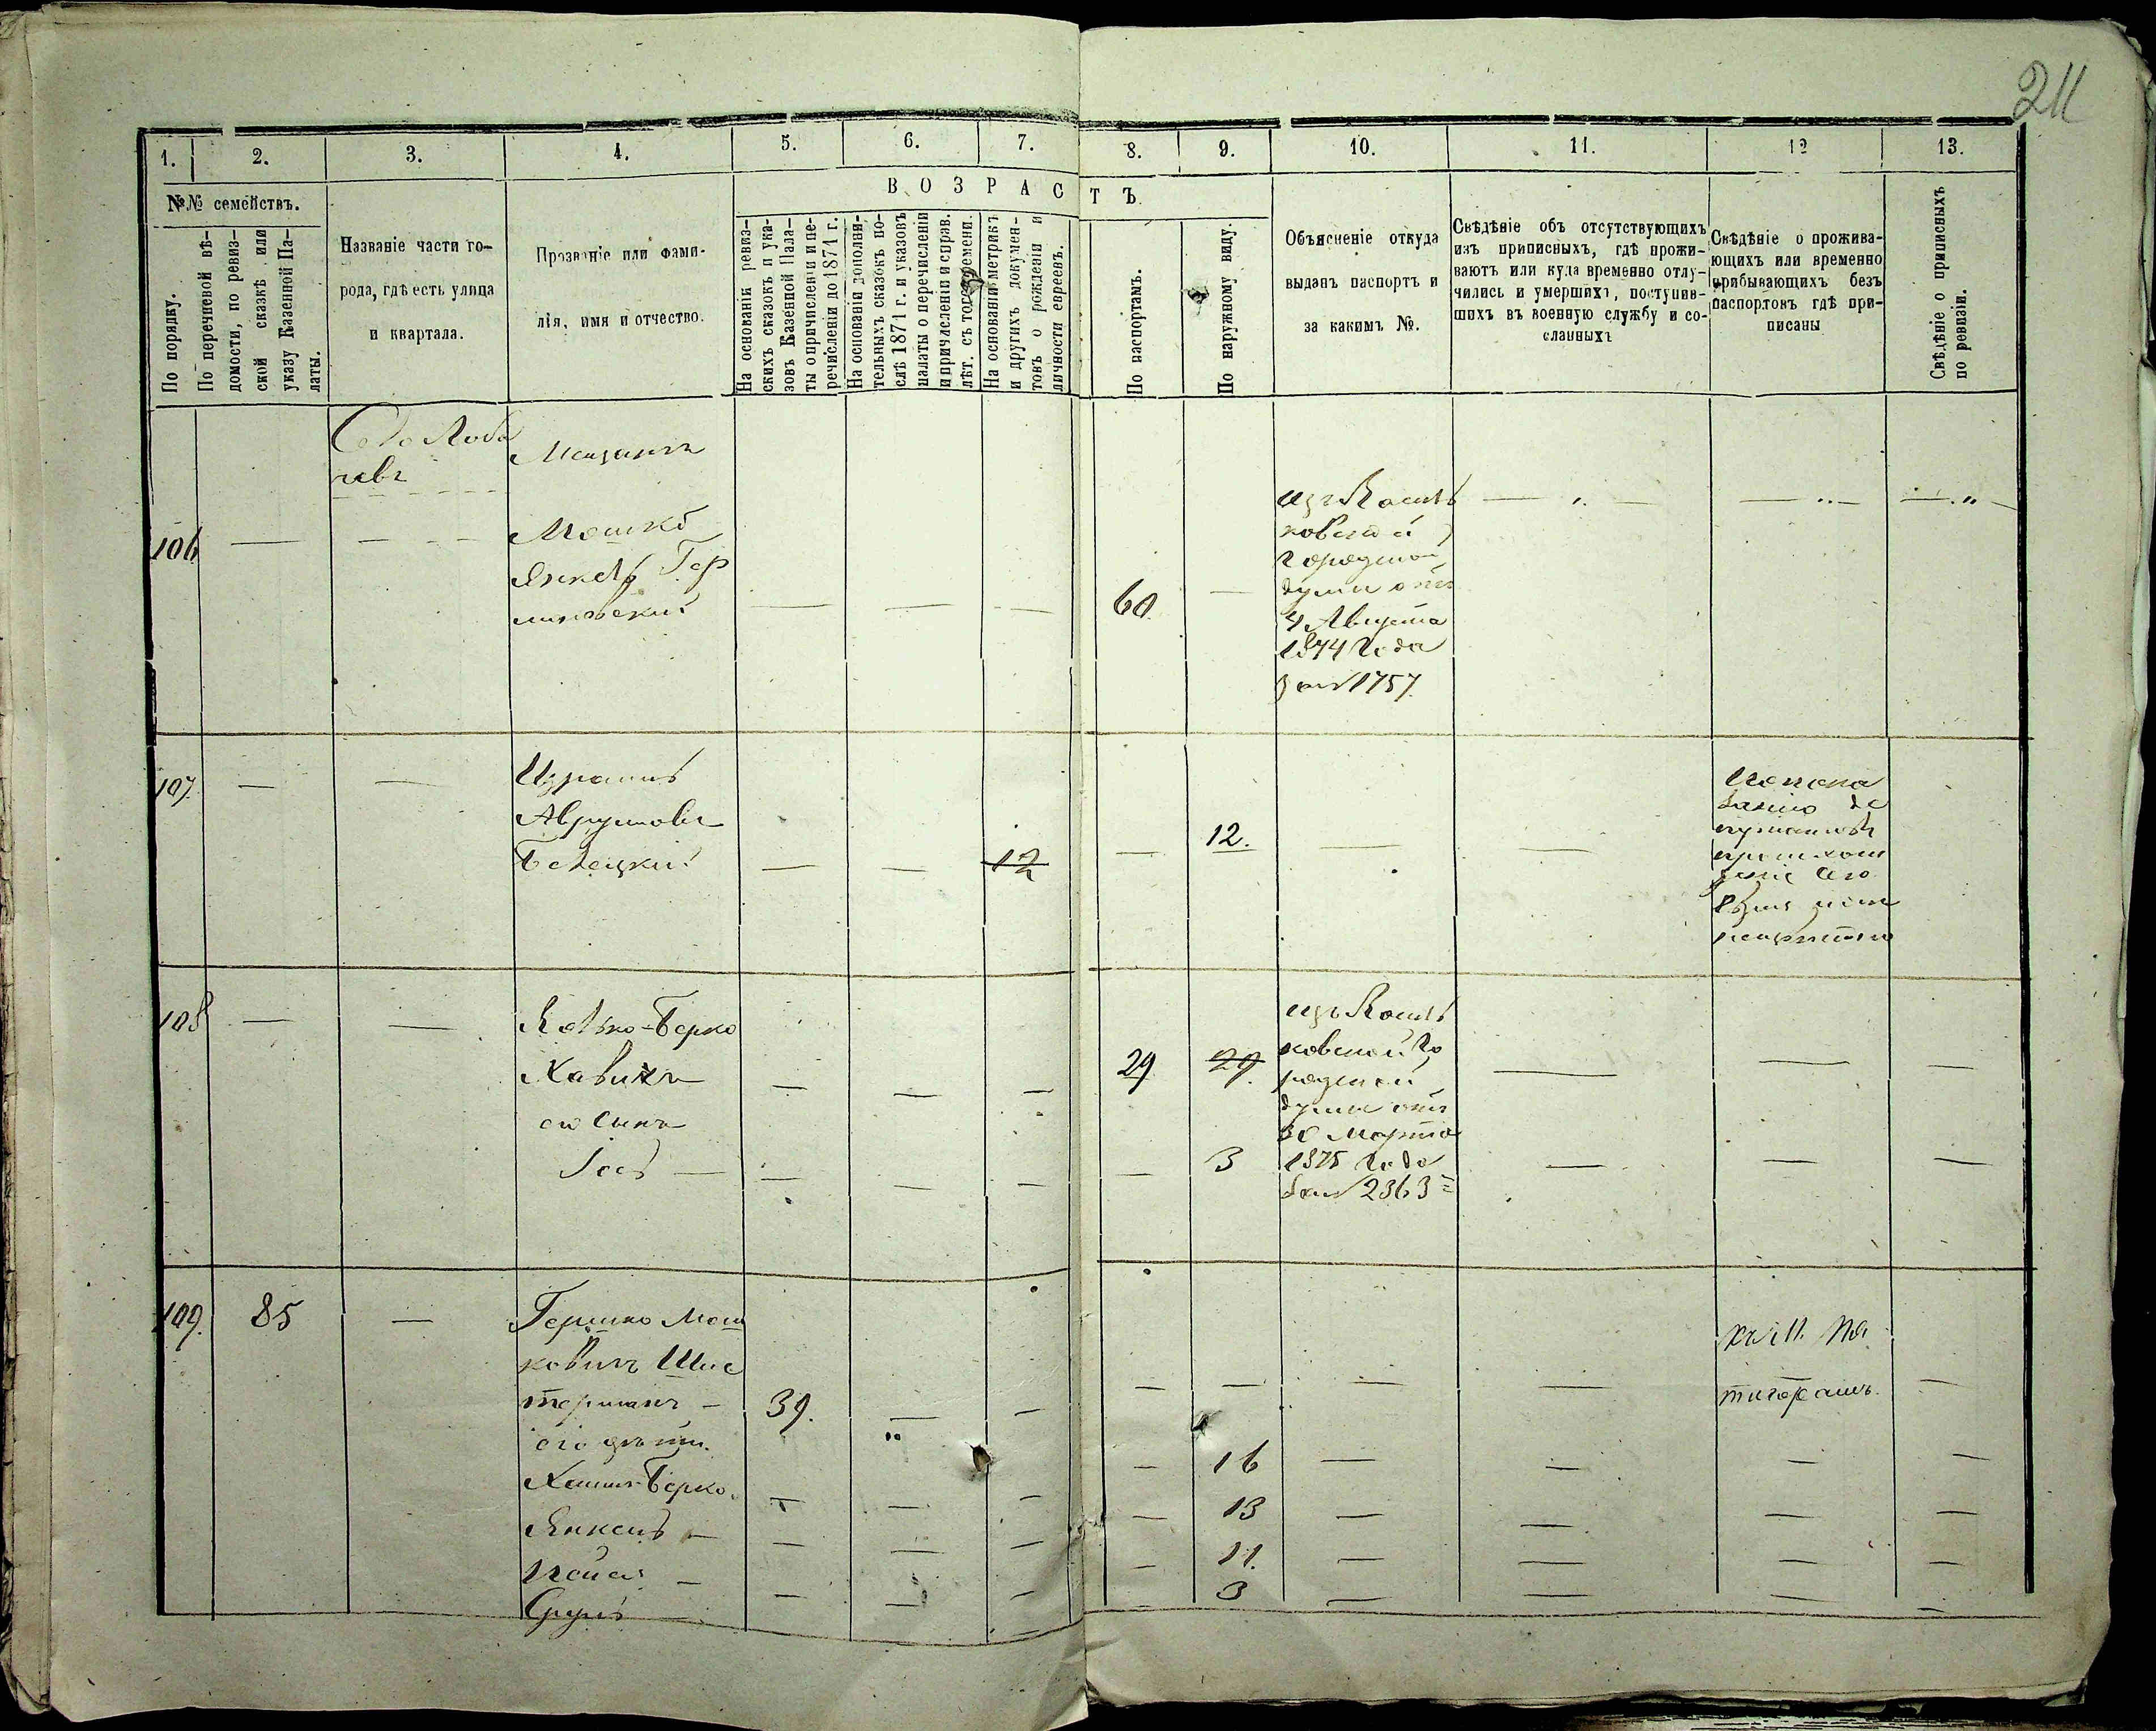 211
1. 2. 3. 4. 5. 6. 7. 8. 9. 10. 11. 12 13.
№№ семействъ.
В О З Р А С Т Ъ
По порядку.
По перечневой вѣ-
домости, по ревиз-
ской сказкѣ или
указу Казенной Па-
латы.
Названіе части го-
рода, гдѣ есть улица
и квартала.
Прозваніе или фами-
лія, имя и отчество.
На основаніи ревиз-
скихъ сказокъ и ука-
зовъ Казенной Пала-
ты о причисленіи и пе-
речисленіи до 1871 г.
На основаніи дополни-
тельныхъ сказокъ по-
слѣ 1871 г. и указовъ
палаты о перечисленіи
и причисленіи и справ.
лѣт. съ того времени.
На основаніи метрикъ
и другихъ докумен-
товъ о рожденіи и
личности евреевъ.
По паспортамъ.
По наружному виду.
Объясненіе откуда
выданъ паспортъ и
за какимъ №.
Свѣдѣніе объ отсутствующихъ
изъ приписныхъ, гдѣ прожи-
ваютъ или куда временно отлу-
чились и умершихъ, поступив-
шихъ въ военную службу и со-
сланныхъ
Свѣдѣніе о прожива-
ющихъ или временно
прибывающихъ безъ
паспортовъ гдѣ при-
писаны
Свѣдѣніе о приписныхъ
по ревизіи.
Мещанъ
106 — — Мошко
Янкель Гер
шковский — — — 60 —
изъ Василь
ковской
городской
думы отъ
4 Августа
1874 Года
за № 1757
107. — — Израиль
Аврумовъ
Белецкий — — 12 — 12. — —
108 — — Берко
Хавихъ — — — 29 29. — — —
его сынъ
— — — — 3 — — —
изъ Василь
ковской Го
родской
думы отъ
30 Марта
1875 Года
за № 2363
109. 85 — Гершко Мош
ковичъ Шус
терманъ — 39. — — — — — — —
его дети.
Хаимъ-Берко. — — — — 16 — — — —
Янкель — — — — — 13 — — — —
— — — — — 11. — — — —
Сруль — — — — — 3 — — — —